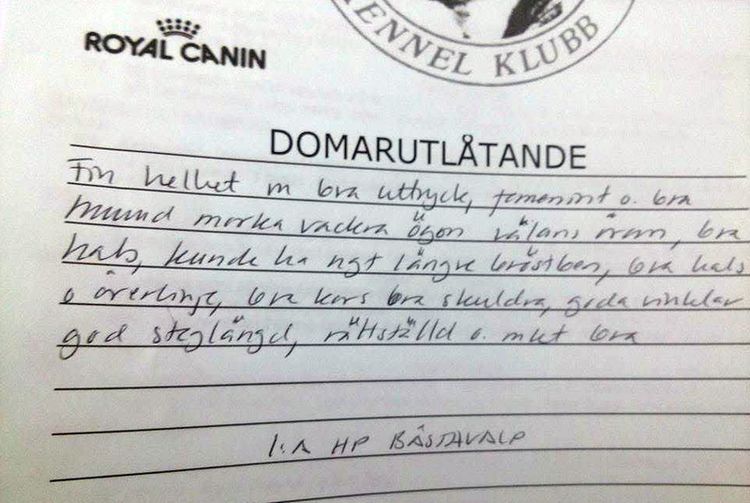 ENNEL KLUBB
ROYAL CANIN
DOMARUTLÅTANDE
Fin helhet m bra uttryck, femenint o. bra
huvud mörka vackra ögon välans öron, bra
hals, kunde ha ngt längre bröstben, bra hals
o överlinje, bra kors bra skuldra, goda vinklar
god steglängd, rättställd o. mkt bra
1:A HP BÄSTAVALP